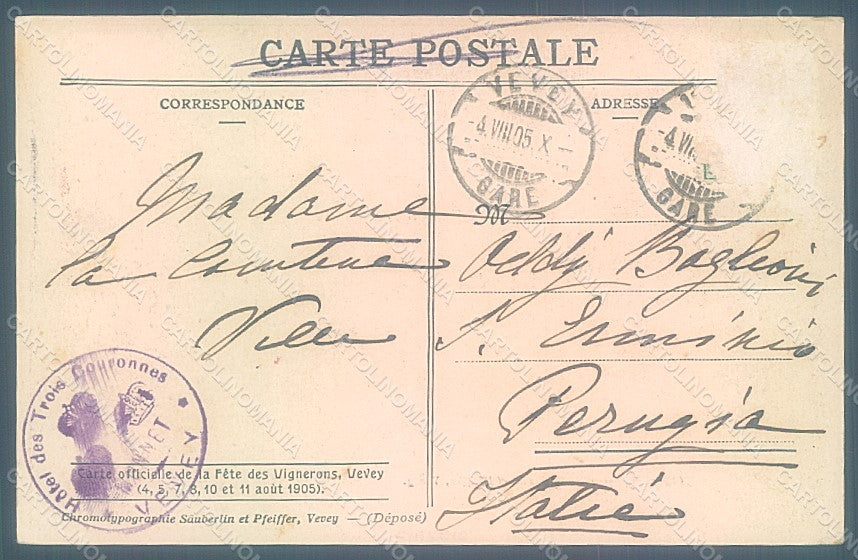 CARTE POSTALE
CORRESPONDANCE
ADRESSE
VEVEY
4.VIII.05. X
GARE
4.VII
GARE
M
Madame
la Comtesse Oddi Baglioni
Villa S. Erminio
Perugia
Italie
Hôtel des Trois Couronnes
VEVEY
Carte officielle de la Fête des Vignerons, Vevey
(4, 5, 7, 8, 10 et 11 août 1905).
Chromotypographie Säuberlin et Pfeiffer, Vevey — (Déposé)
CARTOLINOMANIA